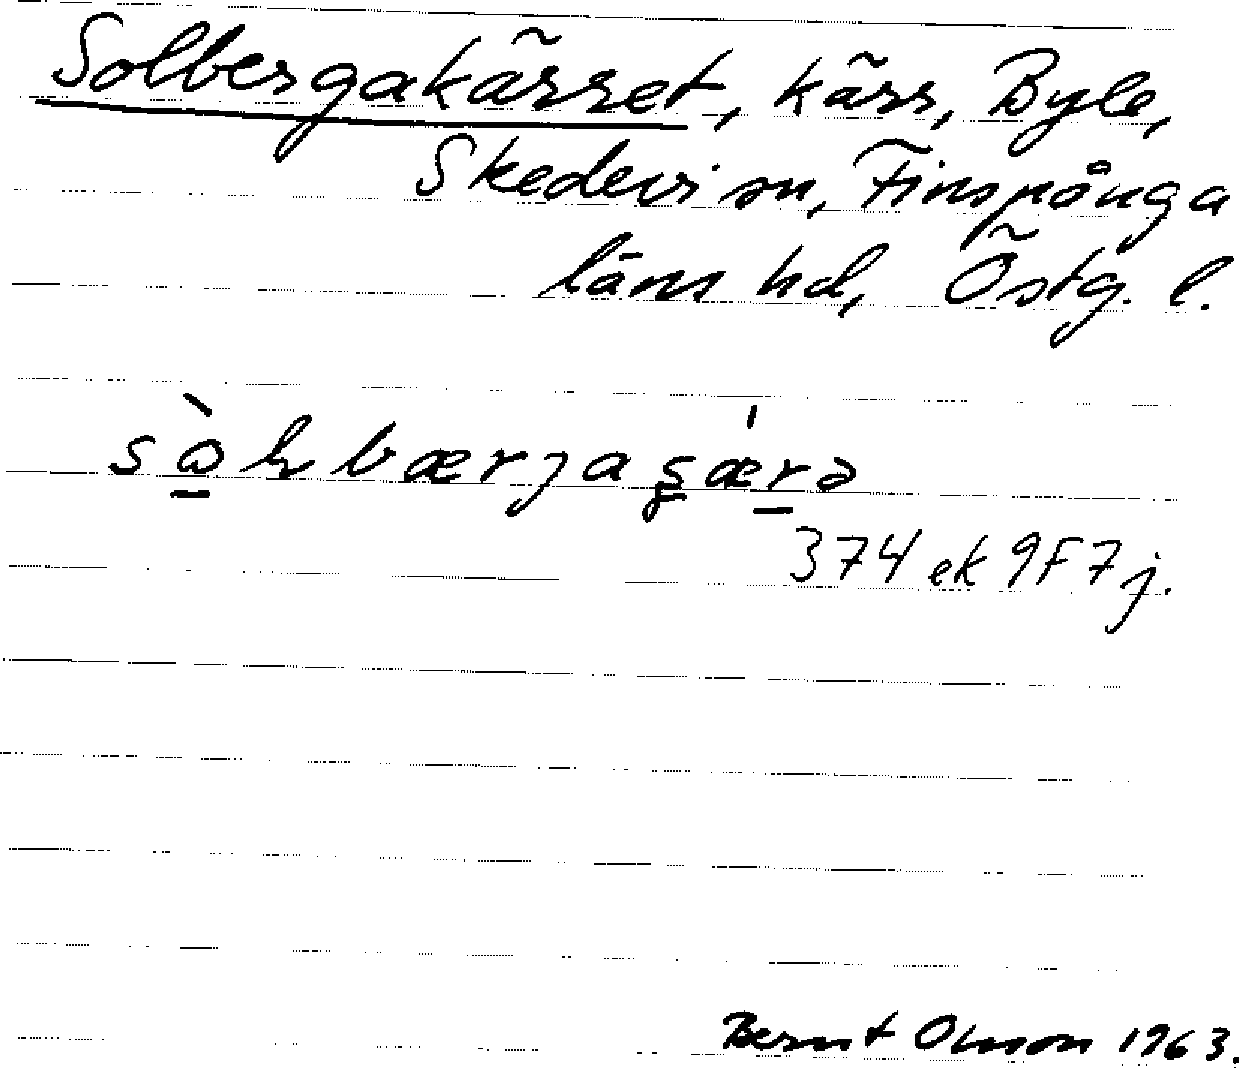 Solbergakärret, kärr, Byle,
Skedevi sn, Finspånga
läns hd, Östg. l.
374 ek 9F7j.
Bernt Olsson 1963.